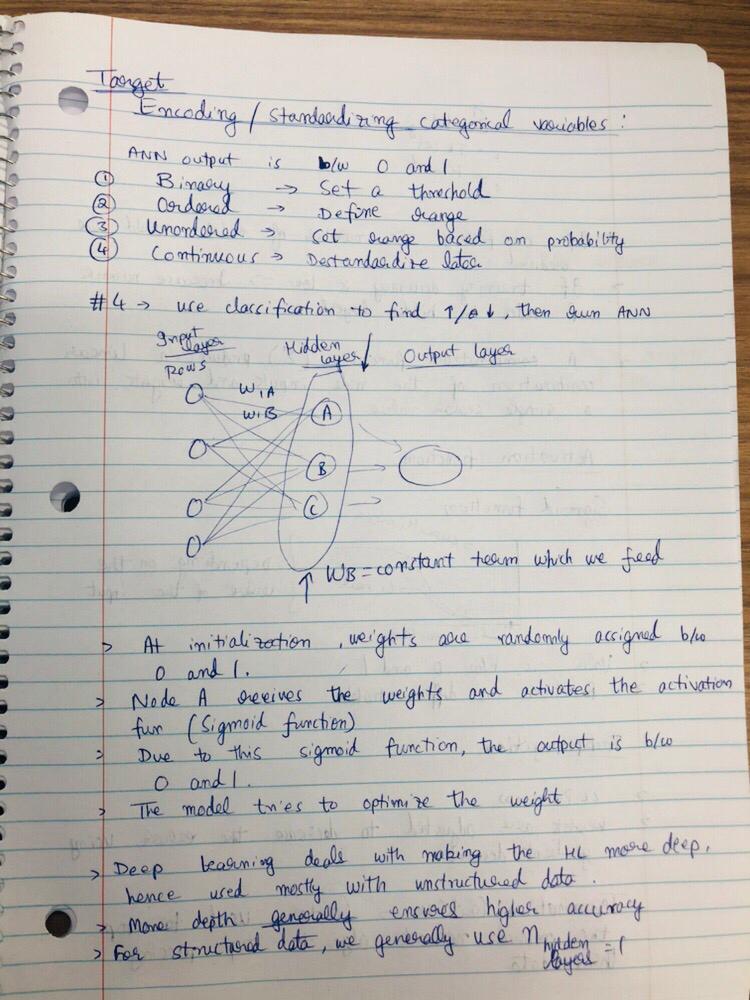 Target
Encoding / Standardizing categorical variables :
ANN output is b/w 0 and 1
① Binary → Set a threshold
② Ordered → Define range
③ Unordered → Set range based on probability
④ Continuous → Destandardize later
#4 → use classification to find ↑/ ↓, then run ANN
Input layer
Rows
Hidden layer
Output layer
W1A
W1B
A
B
C
WB = constant term which we feed
> At initialization, weights are randomly assigned b/w
0 and 1.
> Node A receives the weights and activates the activation
fun (Sigmoid function)
> Due to this sigmoid function, the output is b/w
0 and 1.
> The model tries to optimize the weight
> Deep learning deals with making the HL more deep,
hence used mostly with unstructured data.
> More depth generally ensures higher accuracy
> For structured data, we generally use n hidden layers = 1